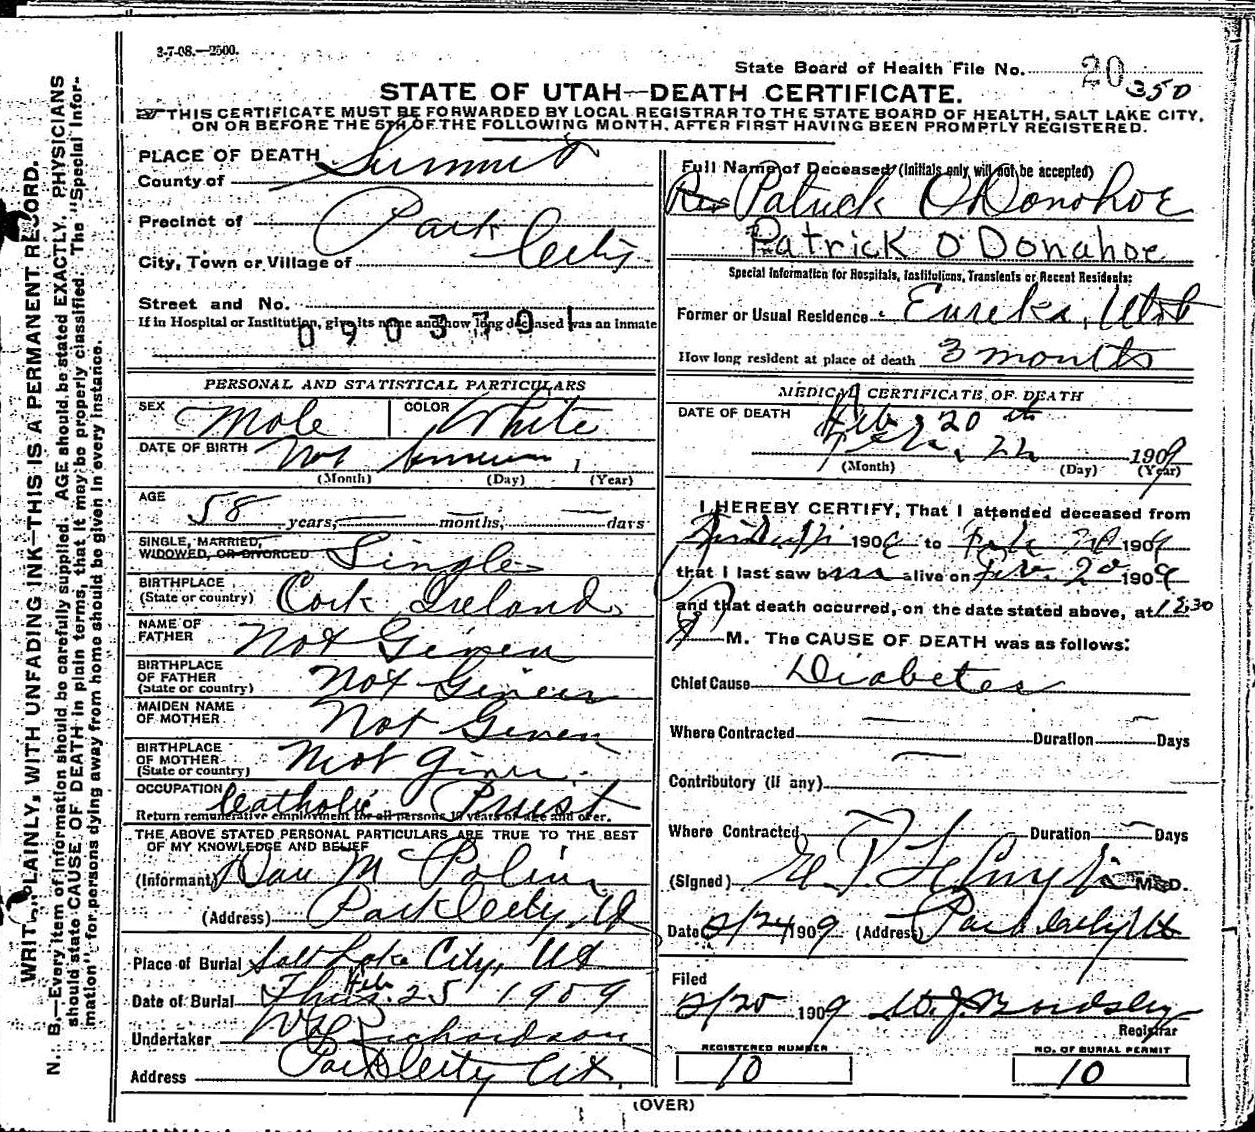 3-7-08.—2500.
State Board of Health File No. 20 350
STATE OF UTAH—DEATH CERTIFICATE.
THIS CERTIFICATE MUST BE FORWARDED BY LOCAL REGISTRAR TO THE STATE BOARD OF HEALTH, SALT LAKE CITY,
ON OR BEFORE THE 5TH OF THE FOLLOWING MONTH, AFTER FIRST HAVING BEEN PROMPTLY REGISTERED.
WRITE PLAINLY, WITH UNFADING INK—THIS IS A PERMANENT RECORD.
N. B.—Every item of information should be carefully supplied. AGE should be stated EXACTLY. PHYSICIANS
should state CAUSE OF DEATH in plain terms, that it may be properly classified. The "Special Infor-
mation" for persons dying away from home should be given in every instance.
PLACE OF DEATH
County of Summit
Precinct of Park
City, Town or Village of City
Street and No.
If in Hospital or Institution, give its name and how long deceased was an inmate
0903701
PERSONAL AND STATISTICAL PARTICULARS
SEX Male COLOR White
DATE OF BIRTH Not 1
(Month) (Day) (Year)
AGE
58 years, — months, — days
SINGLE, MARRIED,
WIDOWED, OR DIVORCED Single
BIRTHPLACE
(State or country) Cork, Ireland
NAME OF
FATHER Not Given
BIRTHPLACE
OF FATHER
(State or country) Not Given
MAIDEN NAME
OF MOTHER Not Given
BIRTHPLACE
OF MOTHER
(State or country) Not Given
OCCUPATION Catholic Priest
Return remunerative employment for all persons 10 years of age and over.
THE ABOVE STATED PERSONAL PARTICULARS ARE TRUE TO THE BEST
OF MY KNOWLEDGE AND BELIEF
(Informant) Dan M
(Address) Park City, Ut
Place of Burial Salt Lake City, Ut
Date of Burial Thurs. Feb 25 1909
Undertaker Richardson
Address Park City Ut.
Full Name of Deceased (Initials only will not be accepted)
Rev Patrick O'Donohoe
Patrick O'Donahoe
Special Information for Hospitals, Institutions, Transients or Recent Residents:
Former or Usual Residence Eureka, Utah
How long resident at place of death 3 months
MEDICAL CERTIFICATE OF DEATH
DATE OF DEATH Feb 20th
22 1909
(Month) (Day) (Year)
I HEREBY CERTIFY, That I attended deceased from
190 to Feb 20 1909
that I last saw him alive on Feb. 20 1909
and that death occurred, on the date stated above, at 12.30
M. The CAUSE OF DEATH was as follows:
Chief Cause Diabetes
Where Contracted — Duration — Days
Contributory (if any) —
Where Contracted — Duration — Days
(Signed) M.D.
Date 2/24 1909 (Address) Park City Ut
Filed
2/25 1909
Registrar
REGISTERED NUMBER
10
NO. OF BURIAL PERMIT
10
(OVER)